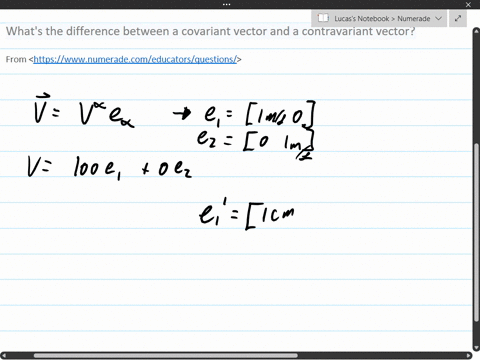 Lucas's Notebook > Numerade
What's the difference between a covariant vector and a contravariant vector?
From <https://www.numerade.com/educators/questions/>
V⃗ = V^α e_α → e₁ = [1m/s 0]
e₂ = [0 1m/s]
V = 100 e₁ + 0 e₂
e₁' = [1cm